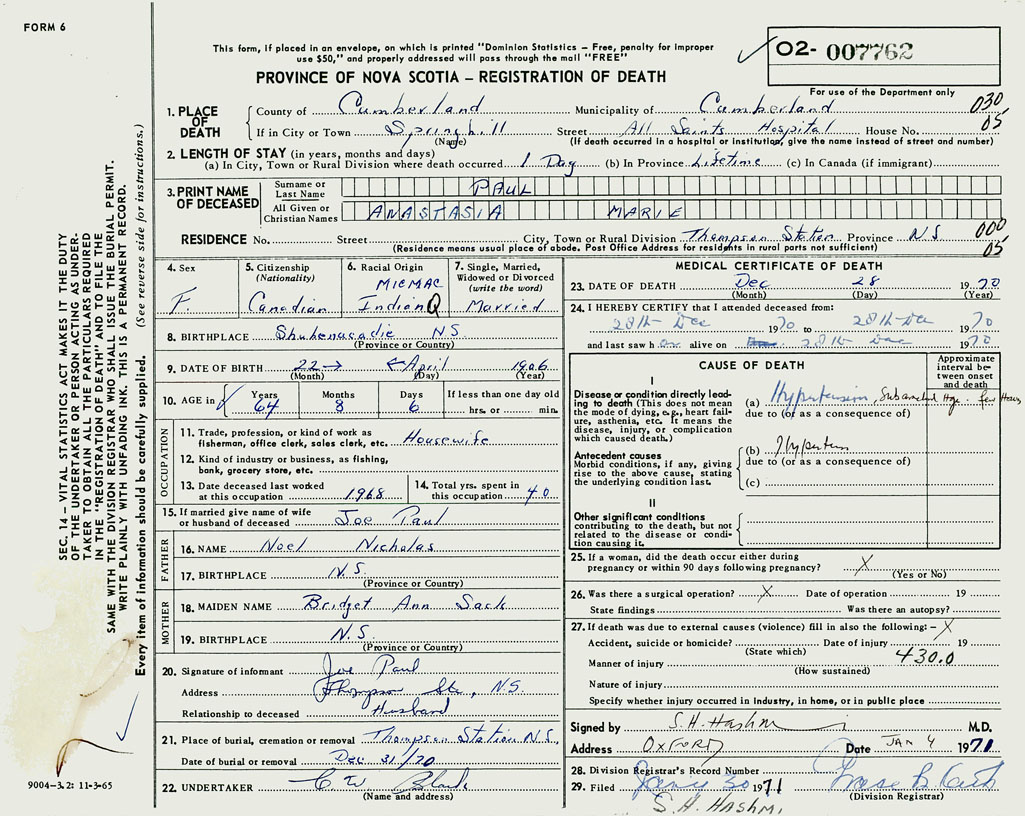 FORM 6
This form, if placed in an envelope, on which is printed "Dominion Statistics – Free, penalty for improper
use $50," and properly addressed will pass through the mail "FREE"
02- 007762
PROVINCE OF NOVA SCOTIA – REGISTRATION OF DEATH
For use of the Department only
030
05
1. PLACE OF DEATH
County of Cumberland Municipality of Cumberland
If in City or Town Springhill Street All Saints Hospital House No.
(Name) (If death occurred in a hospital or institution, give the name instead of street and number)
2. LENGTH OF STAY (in years, months and days)
(a) In City, Town or Rural Division where death occurred 1 Day (b) In Province Lifetime (c) In Canada (if immigrant)
3. PRINT NAME OF DECEASED
Surname or Last Name PAUL
All Given or Christian Names ANASTASIA MARIE
000
05
RESIDENCE No. Street City, Town or Rural Division Thompson Station Province N S
(Residence means usual place of abode. Post Office Address for residents in rural parts not sufficient)
4. Sex
F.
5. Citizenship
(Nationality)
Canadian
6. Racial Origin
MICMAC
Indian
7. Single, Married,
Widowed or Divorced
(write the word)
Married
8. BIRTHPLACE Shubenacadie N S
(Province or Country)
9. DATE OF BIRTH 22 → ← April 1906
(Month) (Day) (Year)
10. AGE in Years 64 Months 8 Days 6 If less than one day old
hrs. or min.
OCCUPATION
11. Trade, profession, or kind of work as
fisherman, office clerk, sales clerk, etc. Housewife
12. Kind of industry or business, as fishing,
bank, grocery store, etc.
13. Date deceased last worked
at this occupation 1968
14. Total yrs. spent in
this occupation 40
15. If married give name of wife
or husband of deceased Joe Paul
FATHER
16. NAME Noel Nicholas
17. BIRTHPLACE N.S.
(Province or Country)
MOTHER
18. MAIDEN NAME Bridget Ann Sack
19. BIRTHPLACE N.S.
(Province or Country)
20. Signature of informant Joe Paul
Address Thompson Sta, N.S.
Relationship to deceased Husband
21. Place of burial, cremation or removal Thompson Station N.S.
Date of burial or removal Dec 31/70
22. UNDERTAKER C W
(Name and address)
MEDICAL CERTIFICATE OF DEATH
23. DATE OF DEATH Dec 28 1970
(Month) (Day) (Year)
24. I HEREBY CERTIFY that I attended deceased from:
28th Dec 1970 to 28th Dec 1970
and last saw her alive on 28th Dec 1970
CAUSE OF DEATH
Approximate
interval be-
tween onset
and death
I
Disease or condition directly lead-
ing to death (This does not mean
the mode of dying, e.g., heart fail-
ure, asthenia, etc. It means the
disease, injury, or complication
which caused death.)
(a) Hypertension, few Hours
due to (or as a consequence of)
Antecedent causes
Morbid conditions, if any, giving
rise to the above cause, stating
the underlying condition last.
(b)
due to (or as a consequence of)
(c)
II
Other significant conditions
contributing to the death, but not
related to the disease or condi-
tion causing it.
25. If a woman, did the death occur either during
pregnancy or within 90 days following pregnancy? X
(Yes or No)
26. Was there a surgical operation? X Date of operation 19
State findings Was there an autopsy?
27. If death was due to external causes (violence) fill in also the following:– X
Accident, suicide or homicide? Date of injury 19
(State which)
430.0
Manner of injury
(How sustained)
Nature of injury
Specify whether injury occurred in industry, in home, or in public place
Signed by S.H. Hashmi M.D.
Address OXFORD Date JAN 4 1971
28. Division Registrar's Record Number
29. Filed 30 1971
(Division Registrar)
S.H. HASHMI
SEC. 14 – VITAL STATISTICS ACT MAKES IT THE DUTY
OF THE UNDERTAKER OR PERSON ACTING AS UNDER-
TAKER TO OBTAIN ALL THE PARTICULARS REQUIRED
IN THE "REGISTRATION OF DEATH" AND TO FILE THE
SAME WITH THE DIVISION REGISTRAR WHO SHALL ISSUE THE BURIAL PERMIT.
WRITE PLAINLY WITH UNFADING INK. THIS IS A PERMANENT RECORD.
Every item of information should be carefully supplied. (See reverse side for instructions.)
9004–3.2: 11-3-65